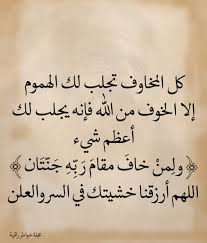 كل المخاوف تجلب لك الهموم
إلا الخوف من الله فإنه يجلب لك
أعظم شيء
﴿ وَلِمَنْ خَافَ مَقَامَ رَبِّهِ جَنَّتَان ﴾
اللهم أرزقنا خشيتك في السر والعلن
مجلة خواطر راقية